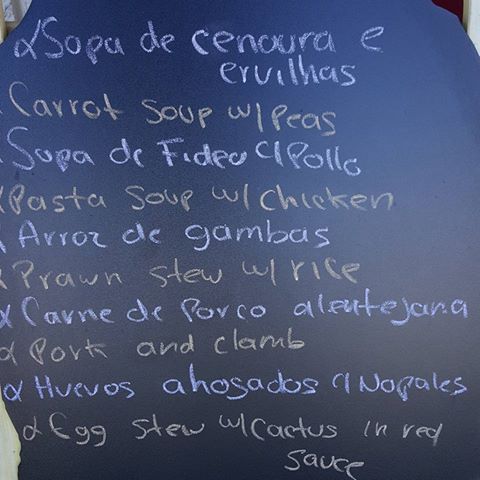 Sopa de cenoura e
ervilhas
Carrot Soup w/Peas
Sopa de Fideo c/Pollo
Pasta Soup w/ Chicken
Arroz de gambas
Prawn stew w/ rice
Carne de Porco alentejana
Pork and clamb
Huevos ahogados c/Nopales
Egg stew w/Cactus in red
sauce